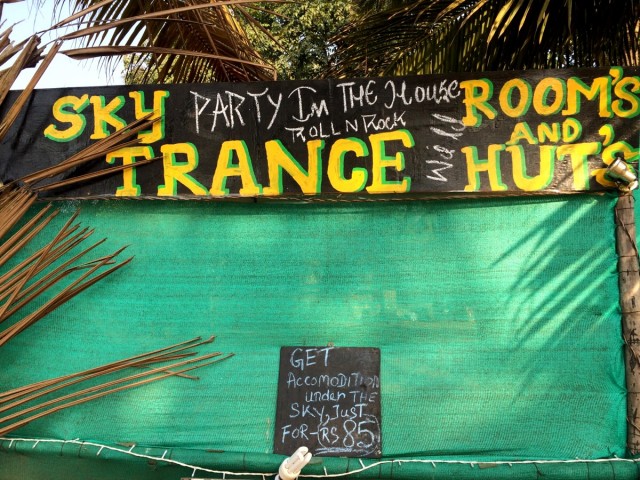 SKY PARTY Im THE House ROOM'S
ROLL N ROCK
TRANCE
AND
HUT'S
GET
AccomoditioN
under THE
SKY, Just
FOR-(RS 85